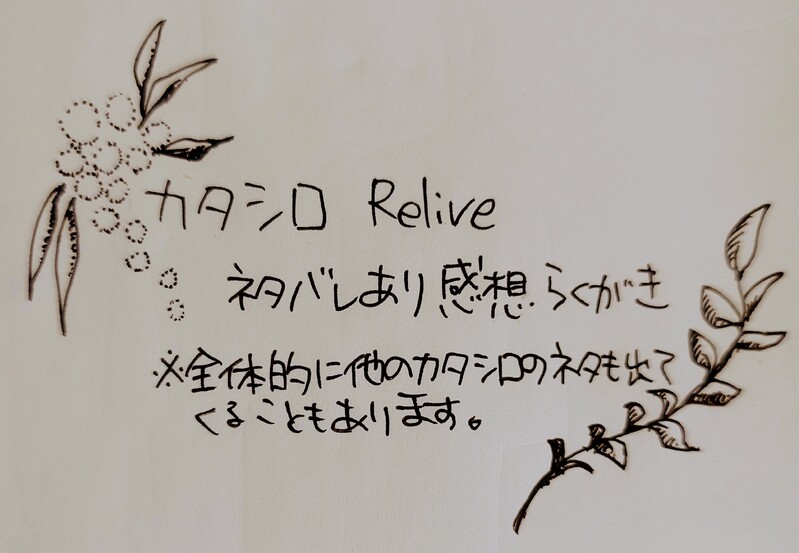 カタシロ Relive
ネタバレあり感想らくがき
※全体的に他のカタシロのネタも出て
くることもあります。